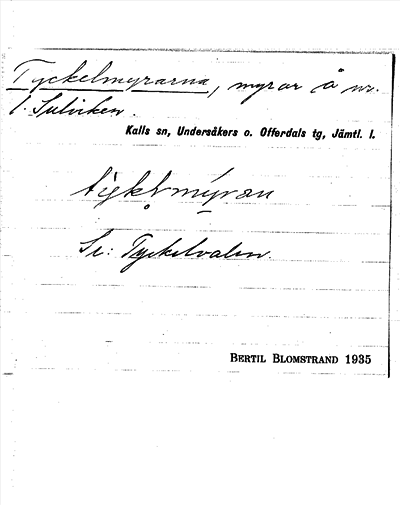 Tyckelmyrarna, myrar å nr.
1. Sulviken.
Kalls sn, Undersåkers o. Offerdals tg, Jämtl. l.
Se: Tyckelvalen.
BERTIL BLOMSTRAND 1935